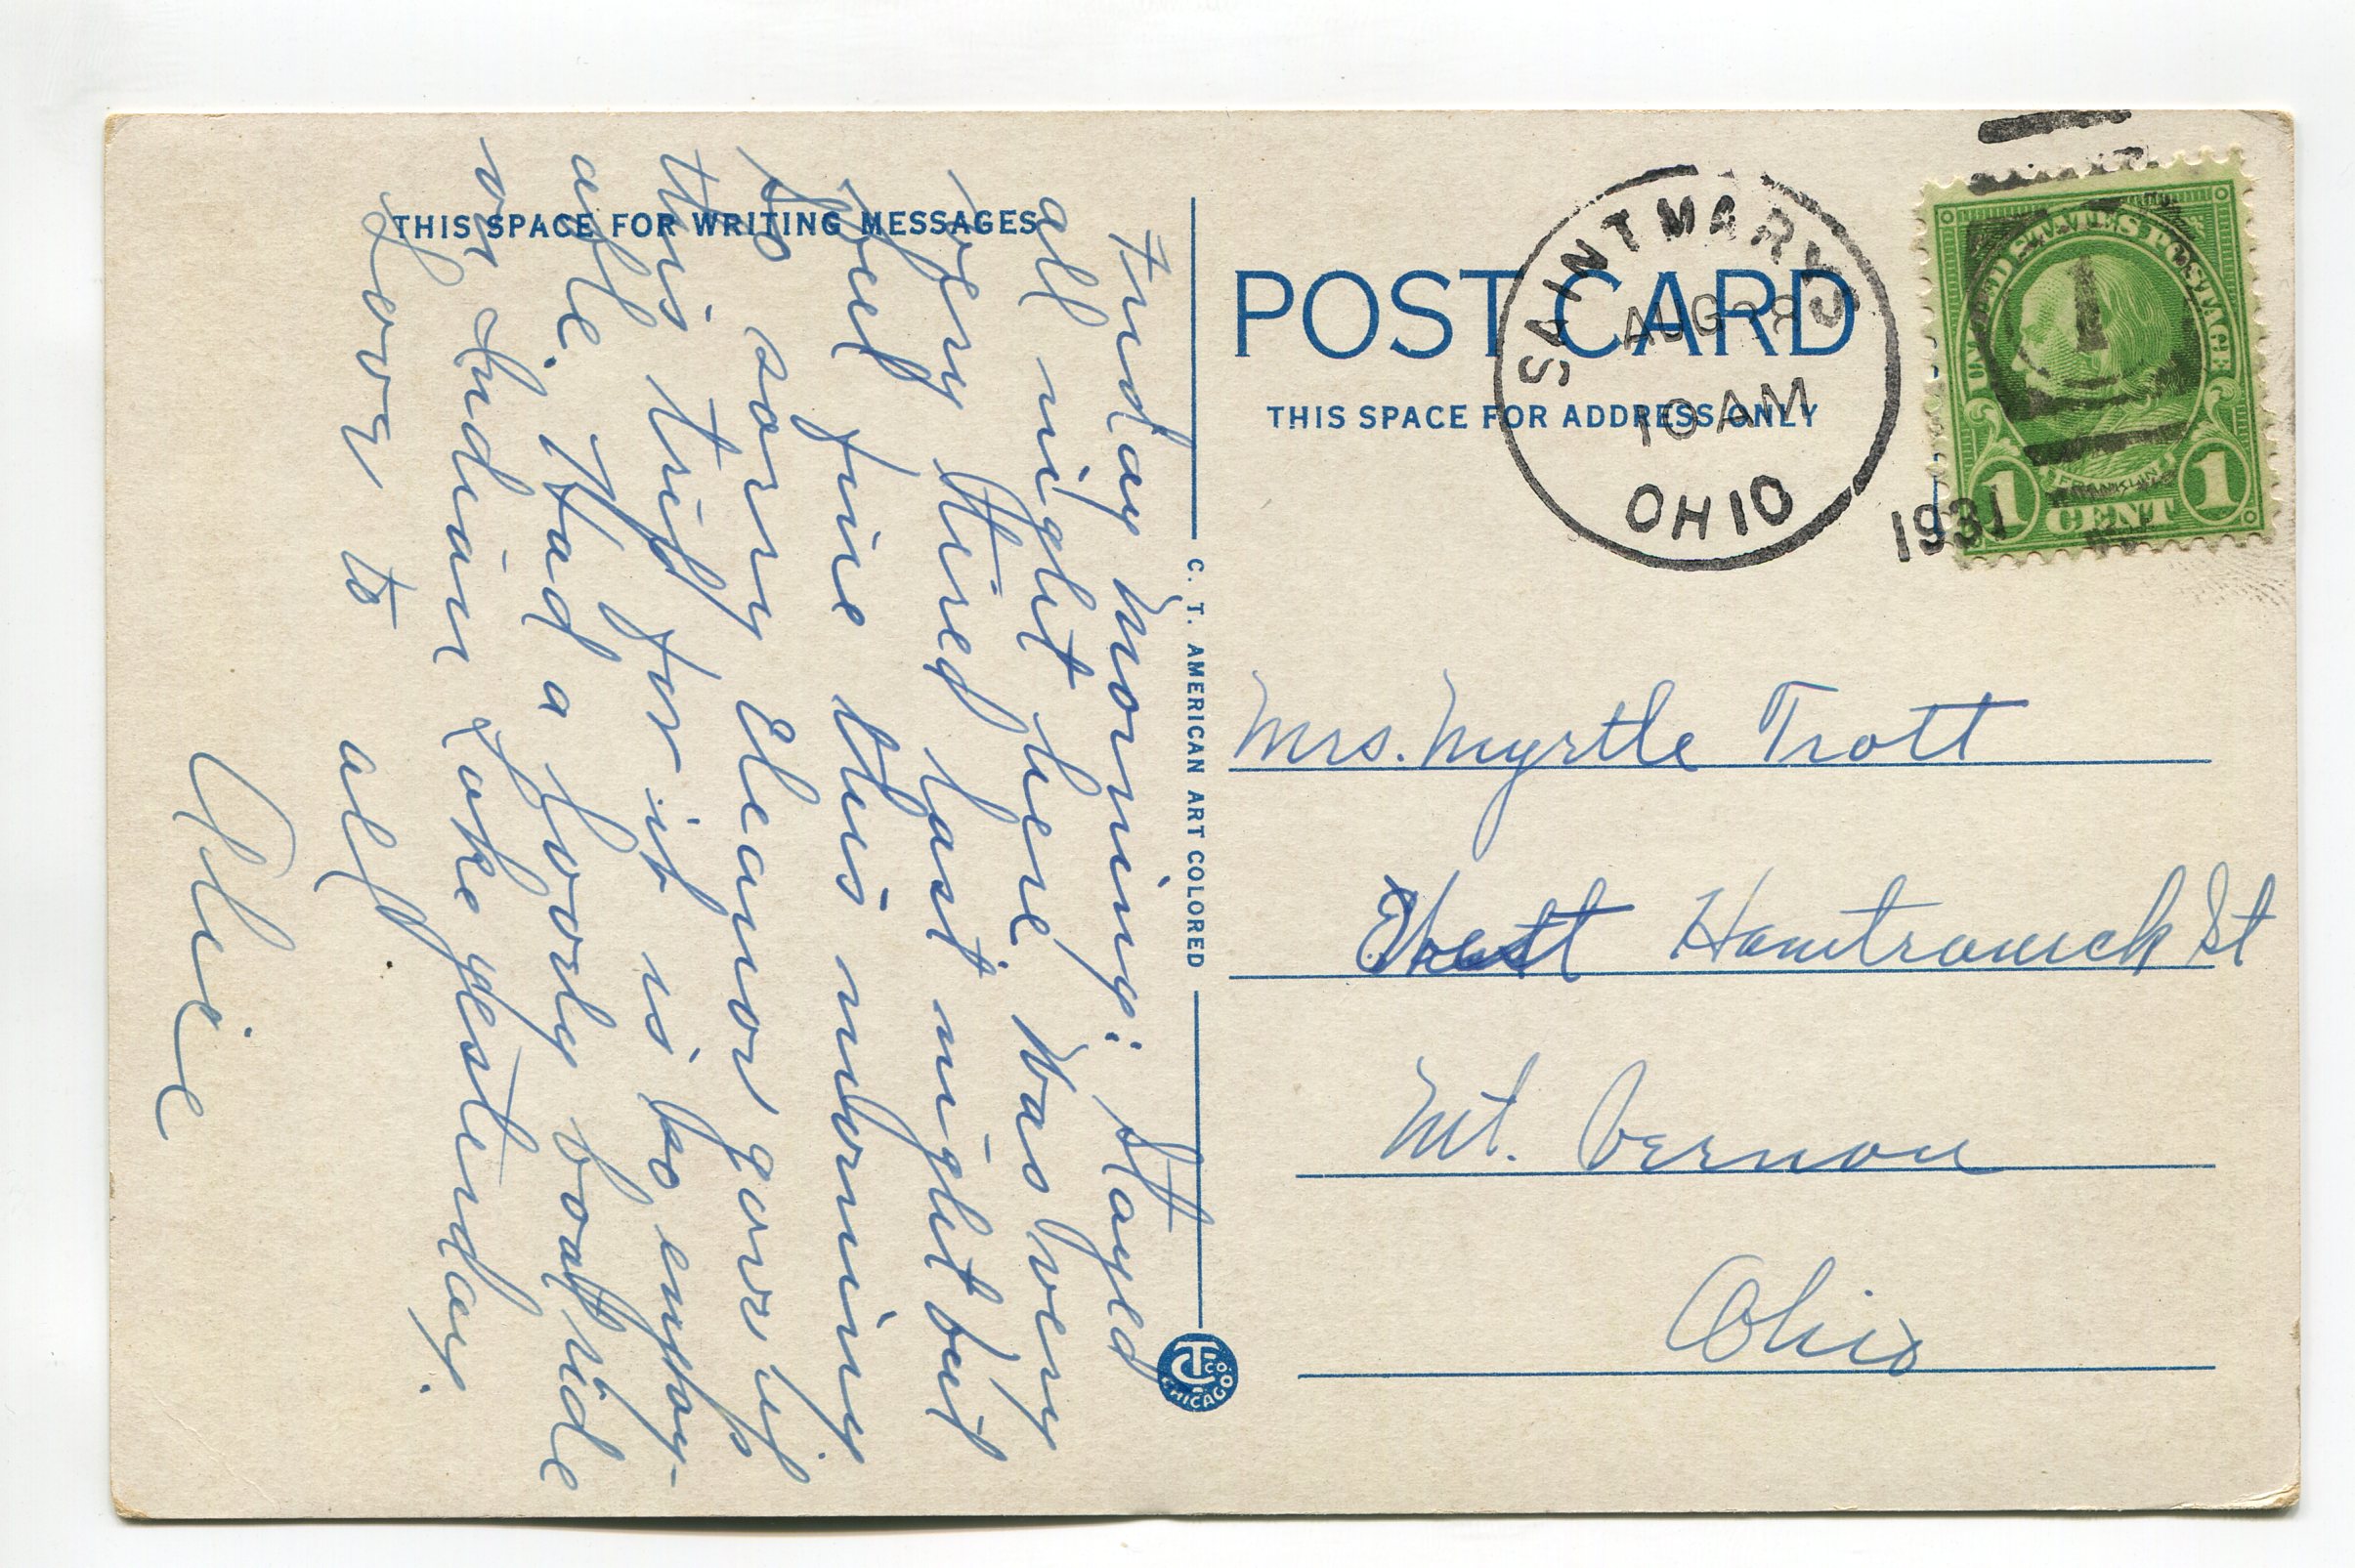 THIS SPACE FOR WRITING MESSAGES
Friday Morning: Stayed
all night here. Was very
very tired last night but
feel fine this morning
So sorry Eleanor gave up
this trip for it is so enjoy-
able. Had a lovely boat ride
on Indian Lake yesterday.
Love to all
Alice
C. T. AMERICAN ART COLORED
C.T. CO. CHICAGO
POST CARD
THIS SPACE FOR ADDRESS ONLY
SAINT MARYS
AUG 28
10 AM
OHIO
1931
UNITED STATES POSTAGE
1
FRANKLIN
1 CENT 1
Mrs. Myrtle Trott
Hamtramck St
Mt. Vernon
Ohio